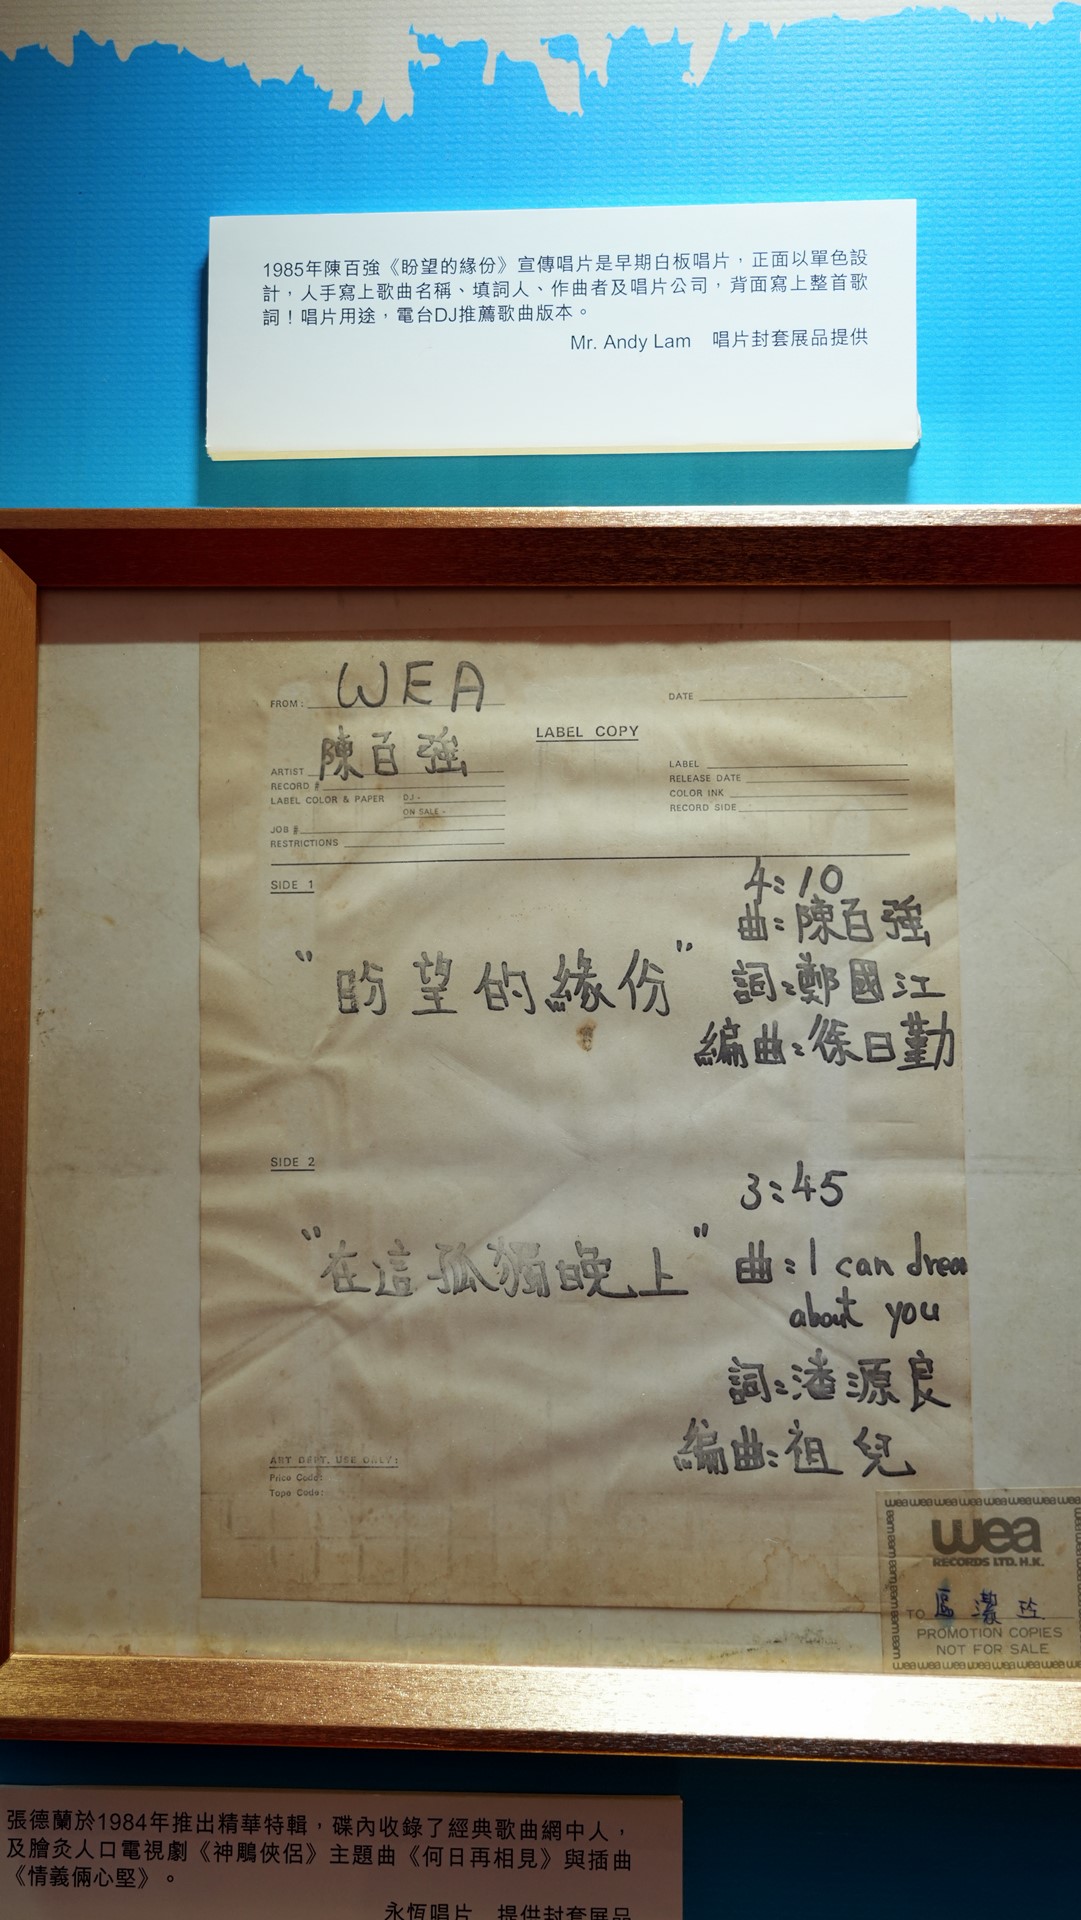 1985年陳百強《盼望的緣份》宣傳唱片是早期白板唱片，正面以單色設
計，人手寫上歌曲名稱、填詞人、作曲者及唱片公司，背面寫上整首歌
詞！唱片用途，電台DJ推薦歌曲版本。
Mr. Andy Lam 唱片封套展品提供
FROM: WEA
DATE
LABEL COPY
ARTIST 陳百強
RECORD #
LABEL COLOR & PAPER DJ -
ON SALE -
JOB #
RESTRICTIONS
LABEL
RELEASE DATE
COLOR INK
RECORD SIDE
SIDE 1
4:10
曲:陳百強
"盼望的緣份"
詞:鄭國江
編曲:徐日勤
SIDE 2
3:45
"在這孤獨晚上"
曲:I can dream
about you
詞:潘源良
編曲:祖兒
ART DEPT. USE ONLY:
Price Code:
Tope Code:
wea wea wea wea wea wea wea wea
wea
RECORDS LTD. H.K.
TO 區潔
PROMOTION COPIES
NOT FOR SALE
wea wea wea wea wea wea wea wea
張德蘭於1984年推出精華特輯，碟內收錄了經典歌曲網中人，
及膾灸人口電視劇《神鵰俠侶》主題曲《何日再相見》與插曲
《情義倆心堅》。
永恆唱片 提供封套展品